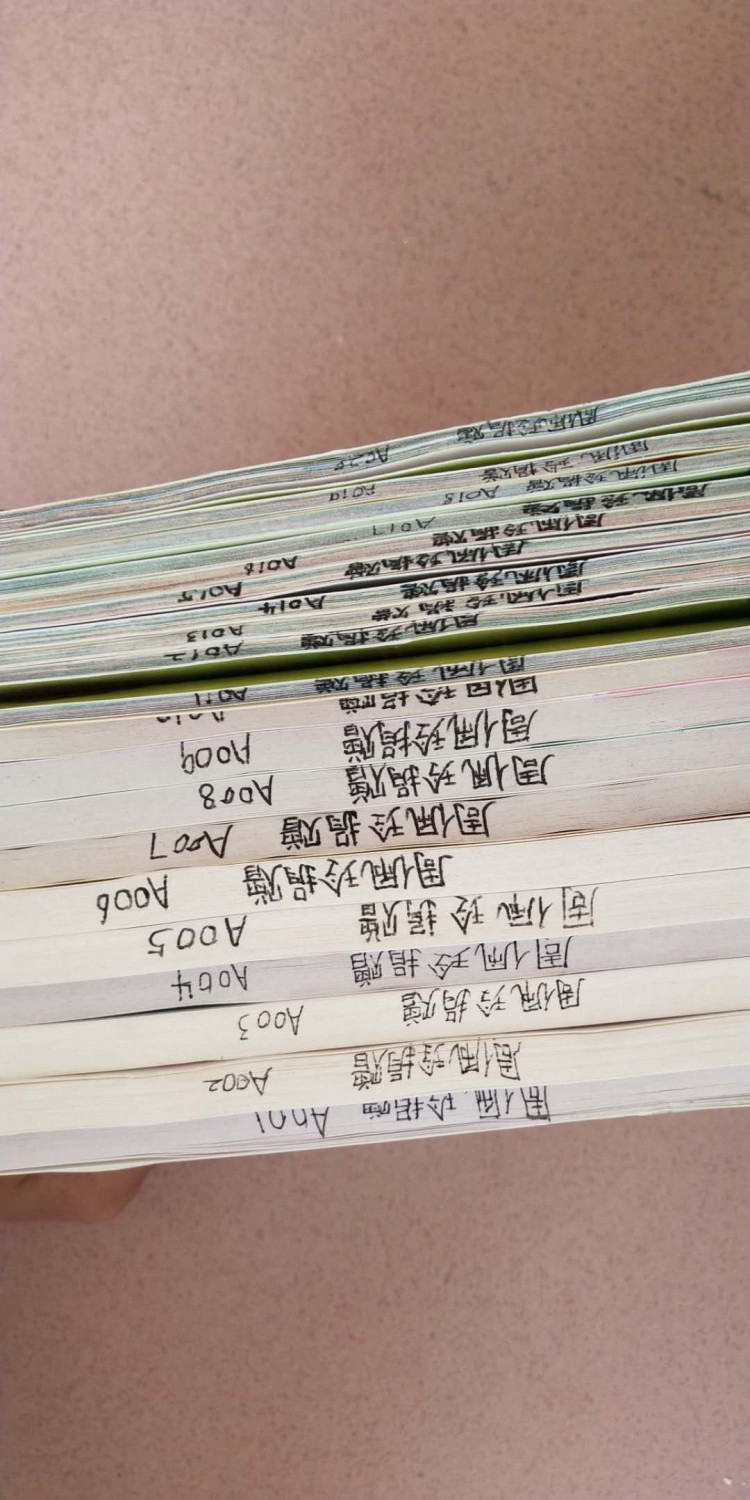 周佩玲捐赠 A001
周佩玲捐赠 A002
周佩玲捐赠 A003
周佩玲捐赠 A004
周佩玲捐赠 A005
周佩玲捐赠 A006
周佩玲捐赠 A007
周佩玲捐赠 A008
周佩玲捐赠 A009
周佩玲捐赠 A010
周佩玲捐赠 A011
周佩玲捐赠 A012
周佩玲捐赠 A013
周佩玲捐赠 A014
周佩玲捐赠 A015
周佩玲捐赠 A016
周佩玲捐赠 A017
周佩玲捐赠 A018
周佩玲捐赠 A019
周佩玲捐赠 A020